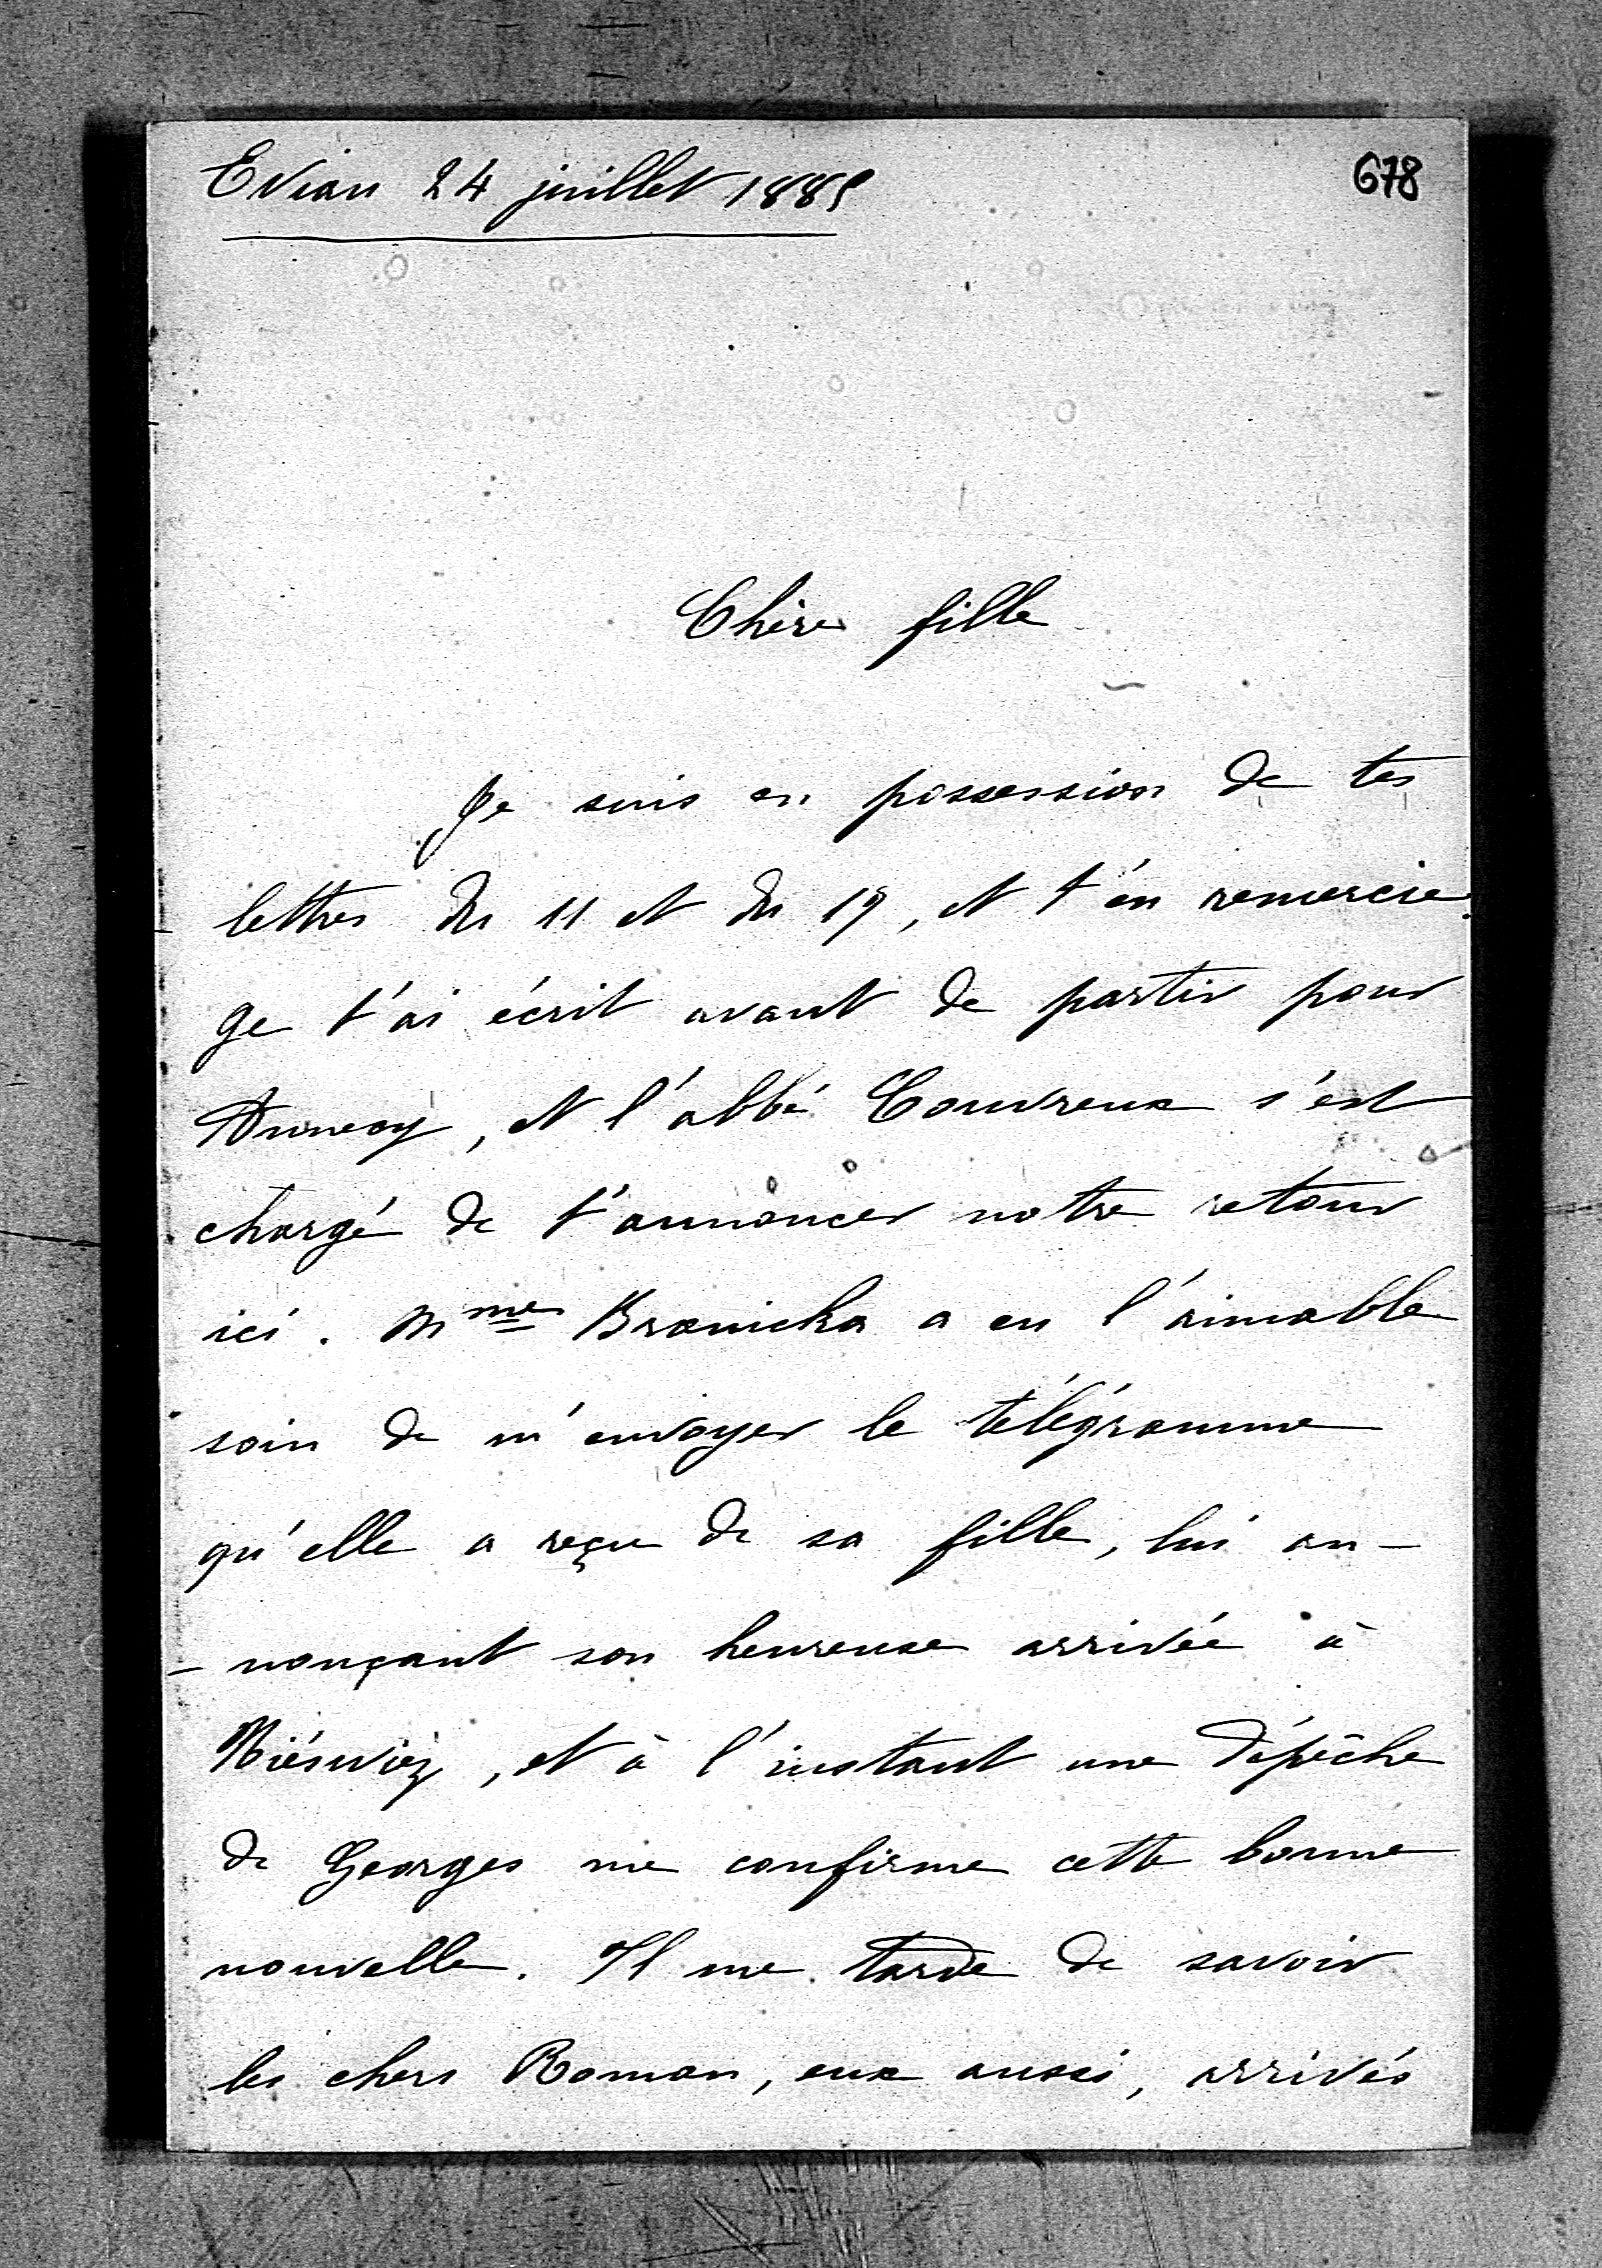 Evian 24 juillet 1889
678
Chère fille
Je suis en possession de tes
lettres du 11 et du 19, et t'en remercie.
Je t'ai écrit avant de partir pour
Annecy, et l'abbé Couvreux s'est
chargé de t'annoncer notre retour
ici. Mme Branicka a eu l'aimable
soin de m'envoyer le télégramme
qu'elle a reçu de sa fille, lui an-
-nonçant son heureuse arrivée à
Niéswiez, et à l'instant une dépêche
de Georges me confirme cette bonne
nouvelle. Il me tarde de savoir
les chers Roman, eux aussi, arrivés